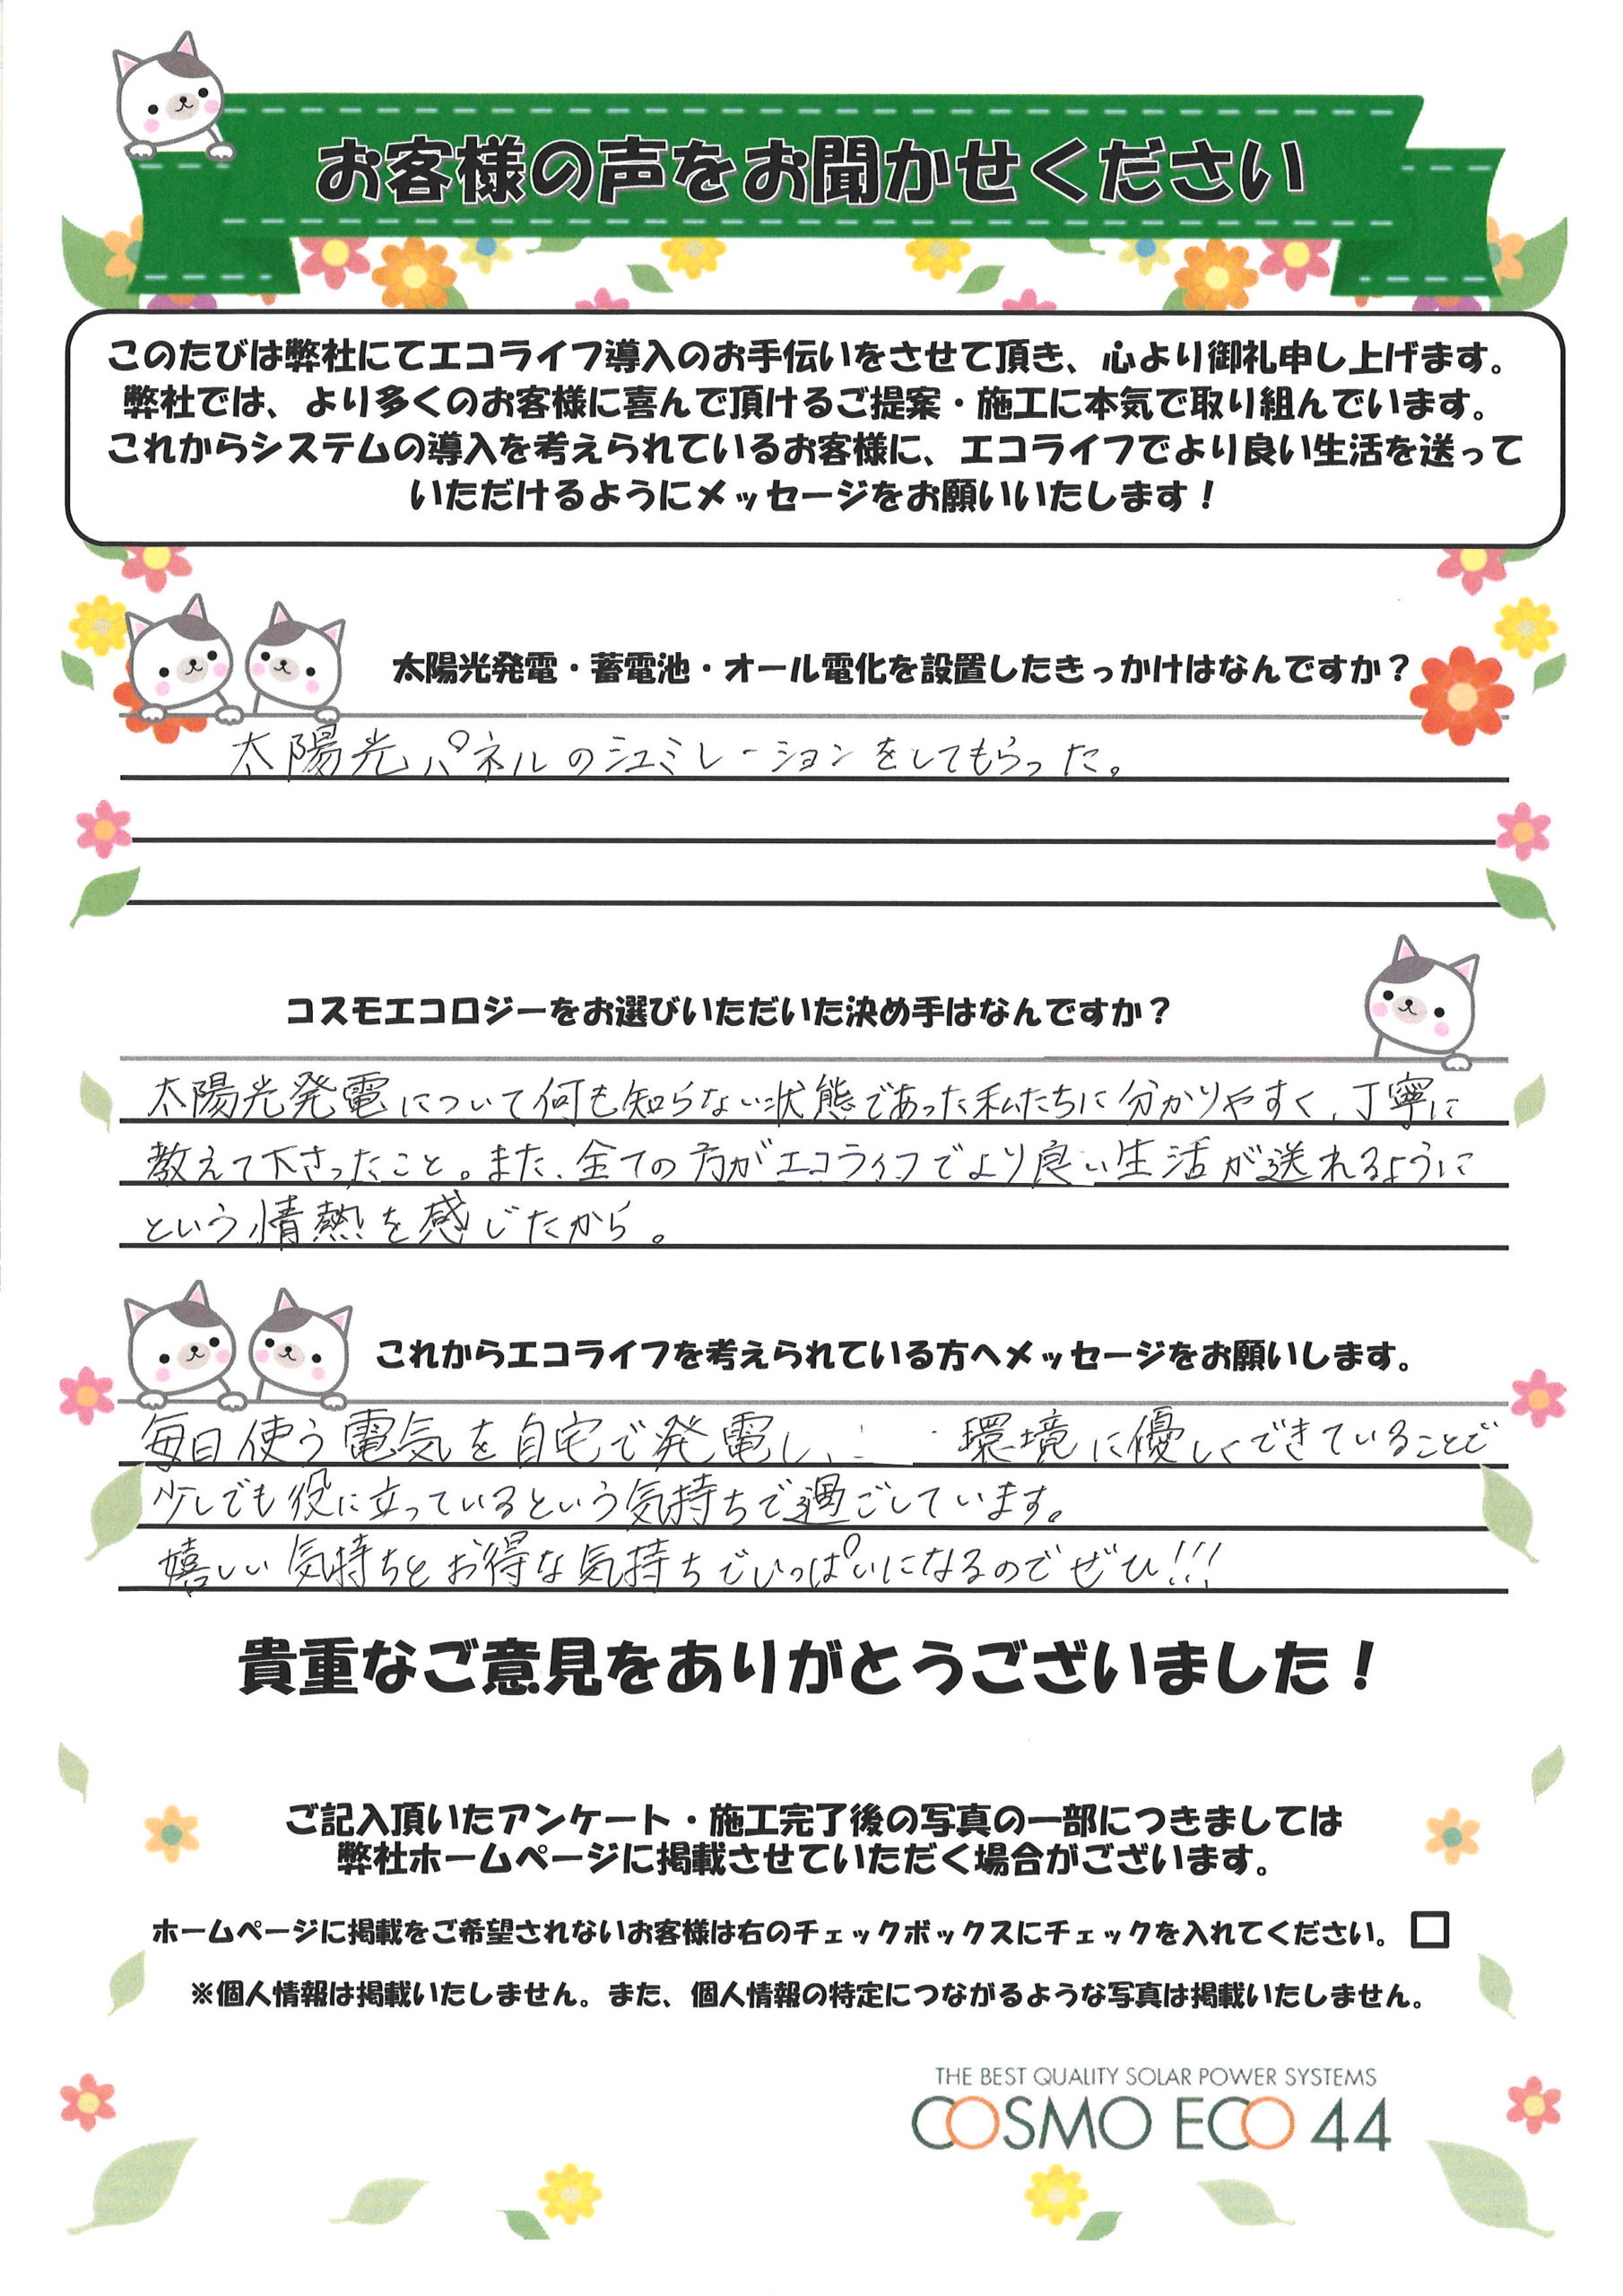 お客様の声をお聞かせください
このたびは弊社にてエコライフ導入のお手伝いをさせて頂き、心より御礼申し上げます。
弊社では、より多くのお客様に喜んで頂けるご提案・施工に本気で取り組んでいます。
これからシステムの導入を考えられているお客様に、エコライフでより良い生活を送って
いただけるようにメッセージをお願いいたします！
太陽光発電・蓄電池・オール電化を設置したきっかけはなんですか？
太陽光パネルのシュミレーションをしてもらった。
コスモエコロジーをお選びいただいた決め手はなんですか？
太陽光発電について何も知らない状態であった私たちに分かりやすく、丁寧に
教えて下さったこと。また、全ての方がエコライフでより良い生活が送れるように
という情熱を感じたから。
これからエコライフを考えられている方へメッセージをお願いします。
毎日使う電気を自宅で発電し、環境に優しくできていることで
少しでも役に立っているという気持ちで過ごしています。
嬉しい気持ちとお得な気持ちでいっぱいになるのでぜひ!!!
貴重なご意見をありがとうございました！
ご記入頂いたアンケート・施工完了後の写真の一部につきましては
弊社ホームページに掲載させていただく場合がございます。
ホームページに掲載をご希望されないお客様は右のチェックボックスにチェックを入れてください。 □
※個人情報は掲載いたしません。また、個人情報の特定につながるような写真は掲載いたしません。
THE BEST QUALITY SOLAR POWER SYSTEMS
COSMO ECO 44